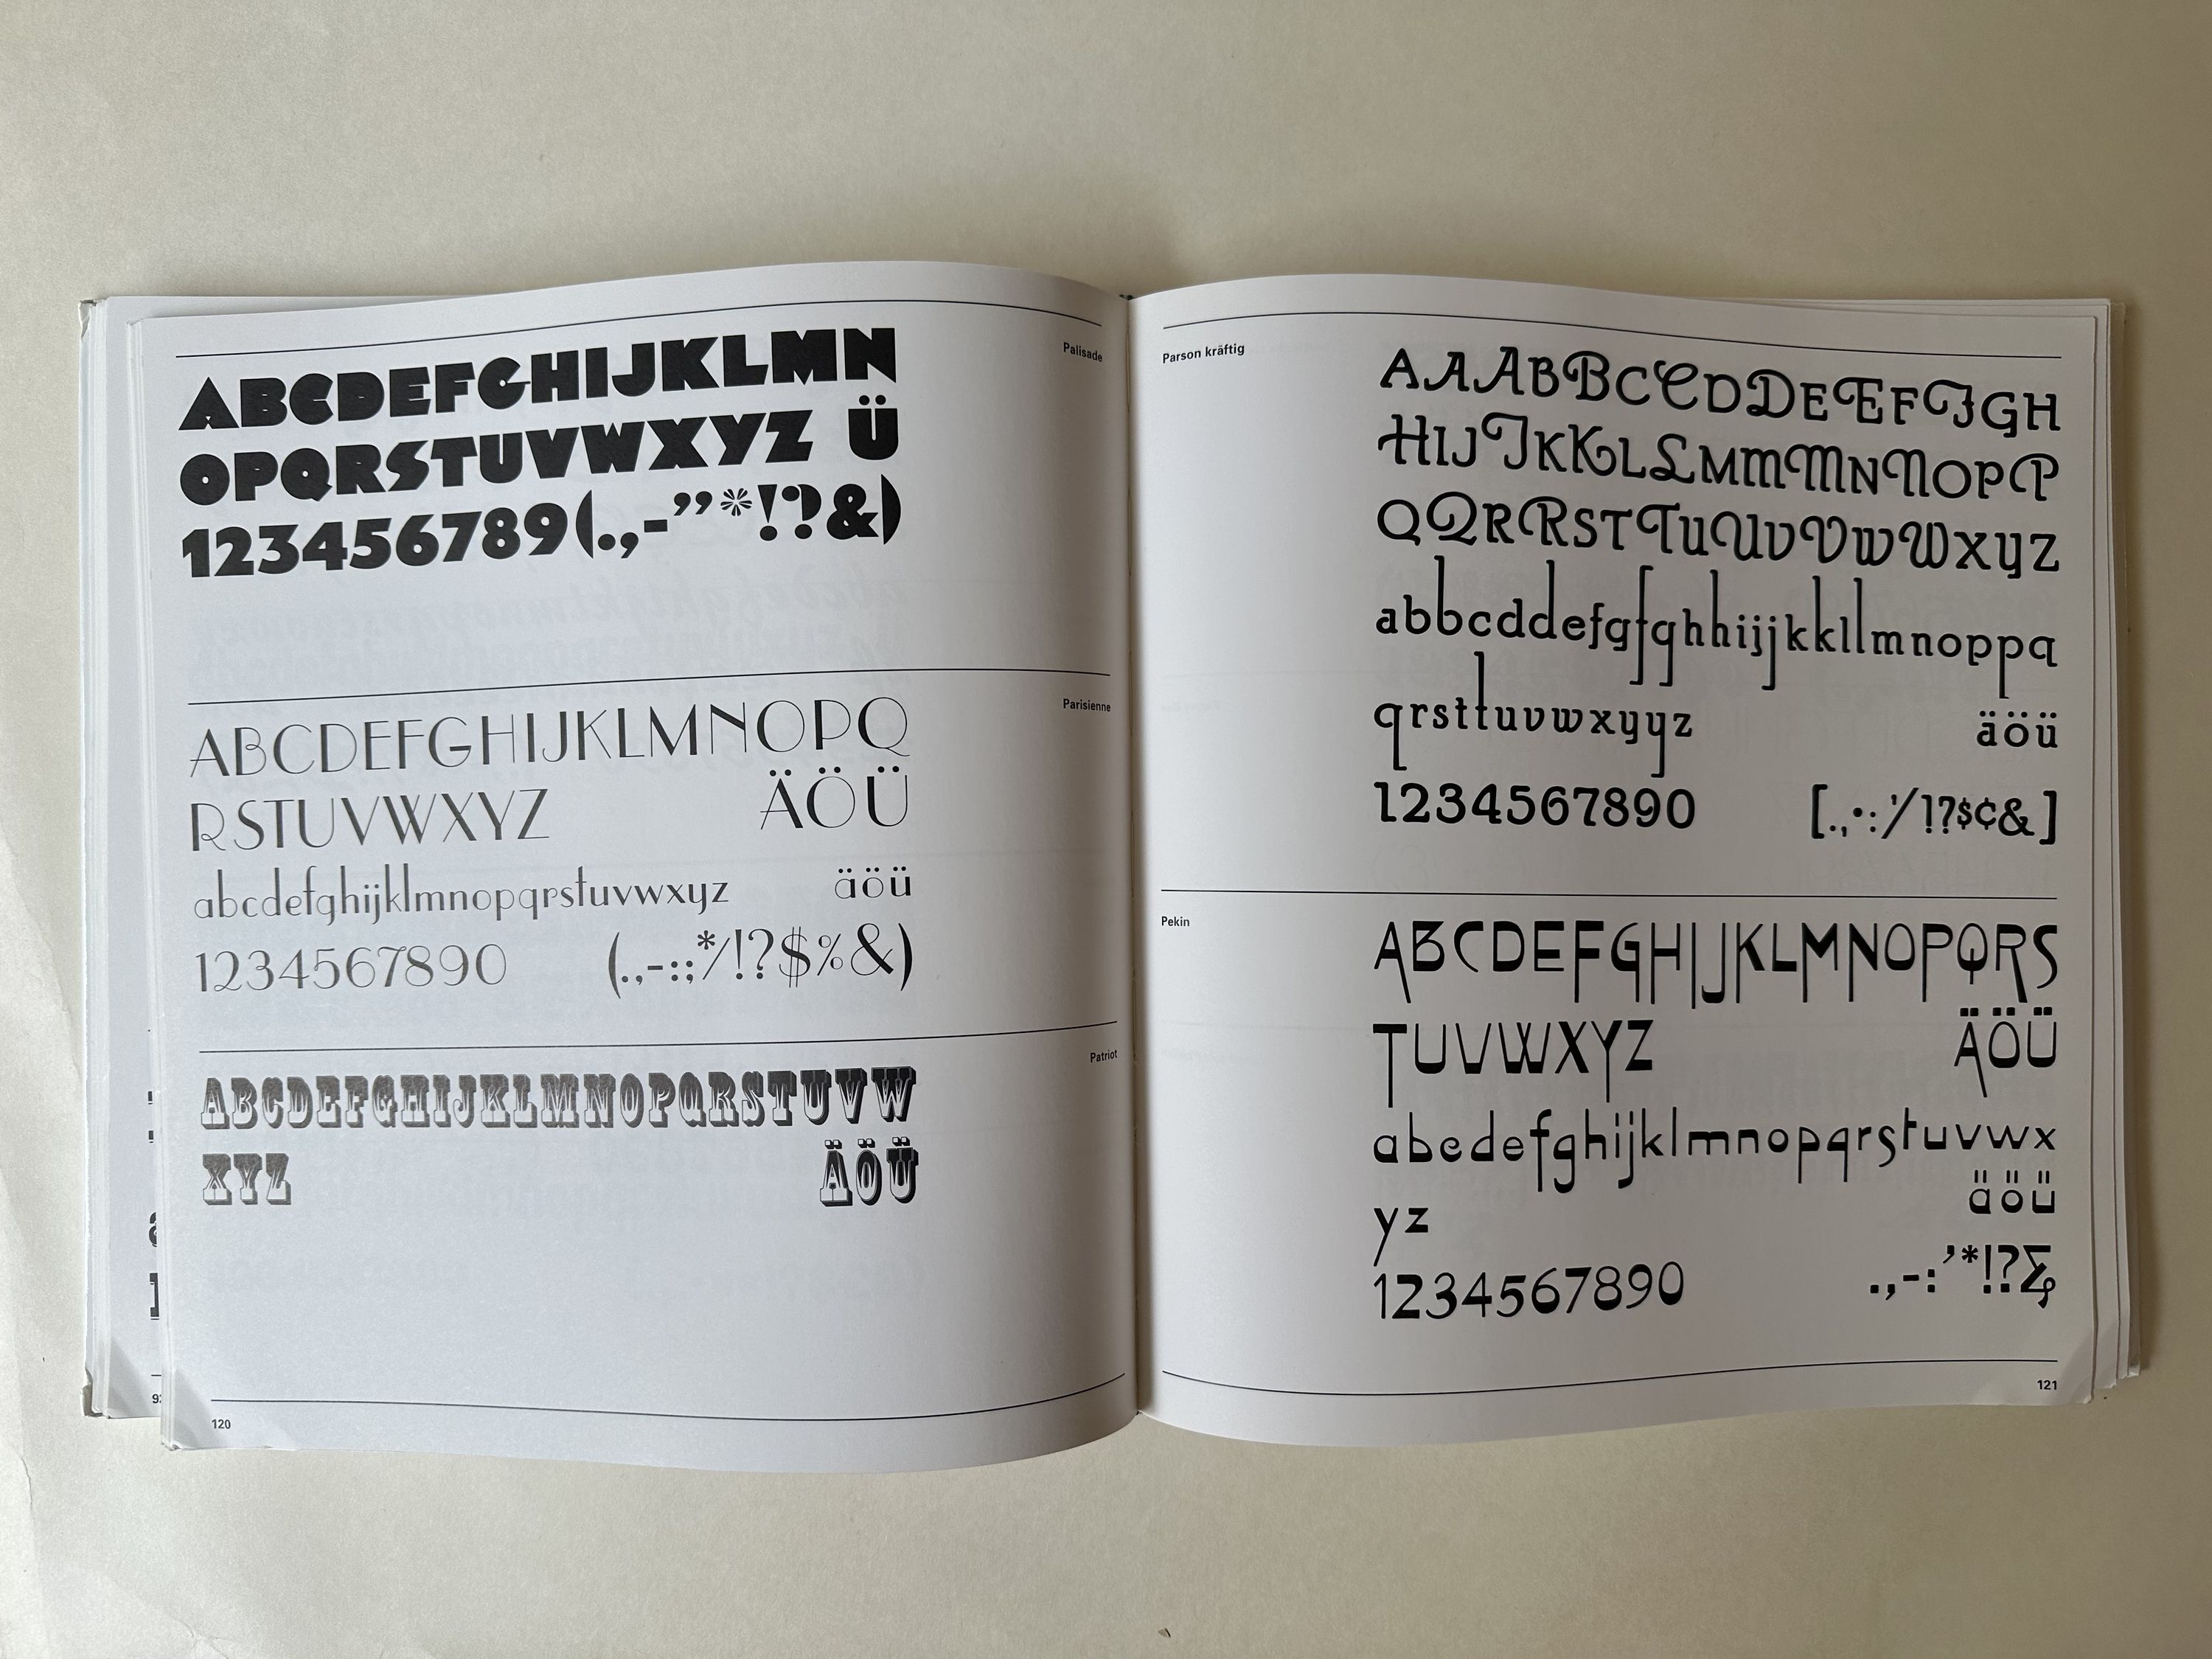 Palisade
ABCDEFGHIJKLMN
OPQRSTUVWXYZ Ü
123456789(.,-”*!?&)
Parisienne
ABCDEFGHIJKLMNOPQ
RSTUVWXYZ ÄÖÜ
abcdefghijklmnopqrstuvwxyz äöü
1234567890 (.,-:;*/!?$%&)
Patriot
ABCDEFGHIJKLMNOPQRSTUVW
XYZ ÄÖÜ
120
Parson kräftig
AAABBCCDDEEFFGH
HIJJKKLLMMMNNOPP
QQRRSTTUUVVWWXYZ
abbcddefgfghhijjkkllmnoppq
qrsttuvwxyyz äöü
1234567890 [.,·:’/!?$¢&]
Pekin
ABCDEFGHIJKLMNOPQRS
TUVWXYZ ÄÖÜ
abcdefghijklmnopqrstuvwx
yz äöü
1234567890 .,-:’*!?&
121